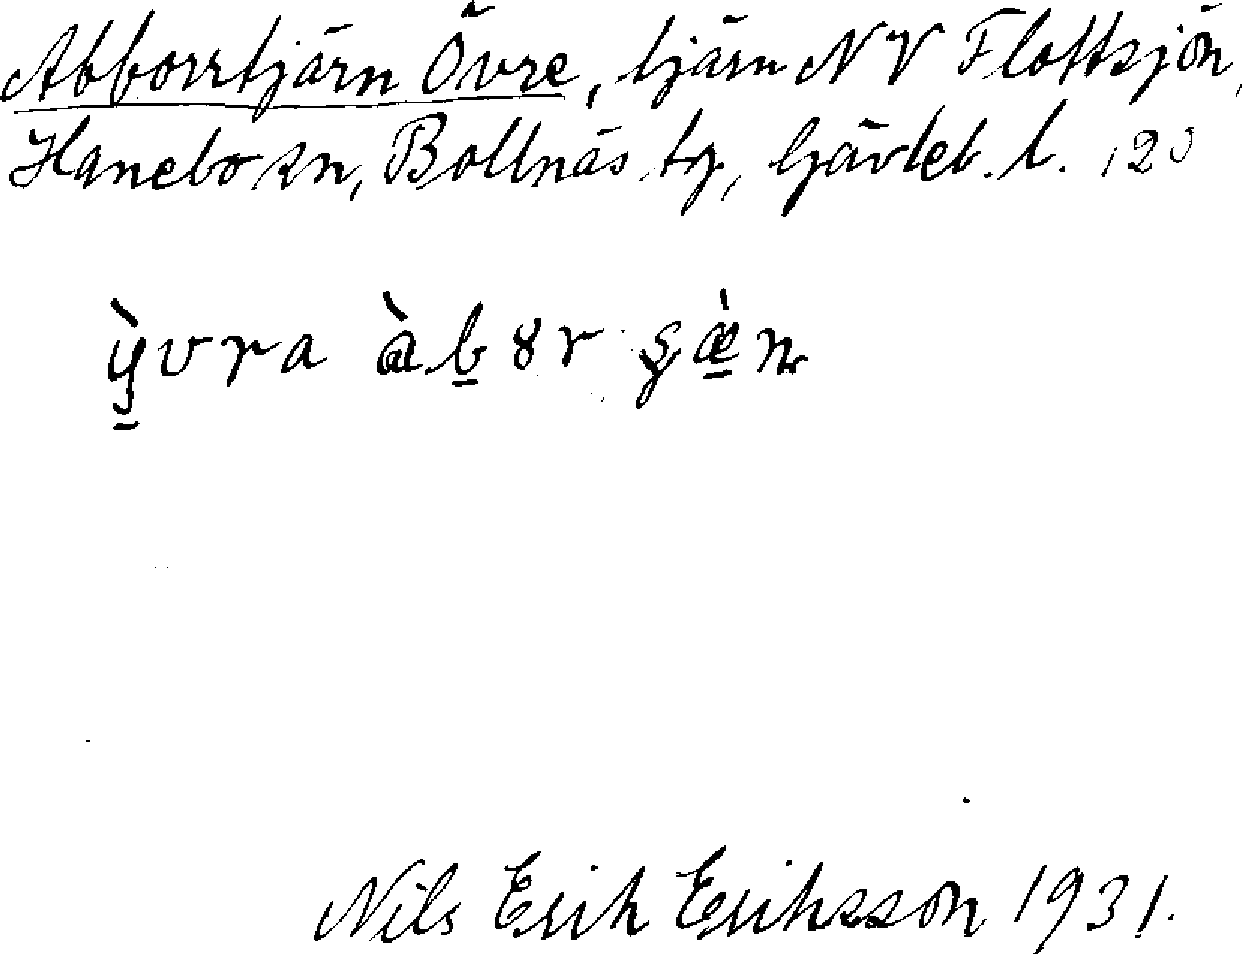 Abborrtjärn Övre, tjärn NV Flottsjön,
Hanebo sn, Bollnäs tg, Gävleb. l. 120
ỳ̠vra àb̠ȣr ʂæ̠̀n
Nils Erik Eriksson 1931.